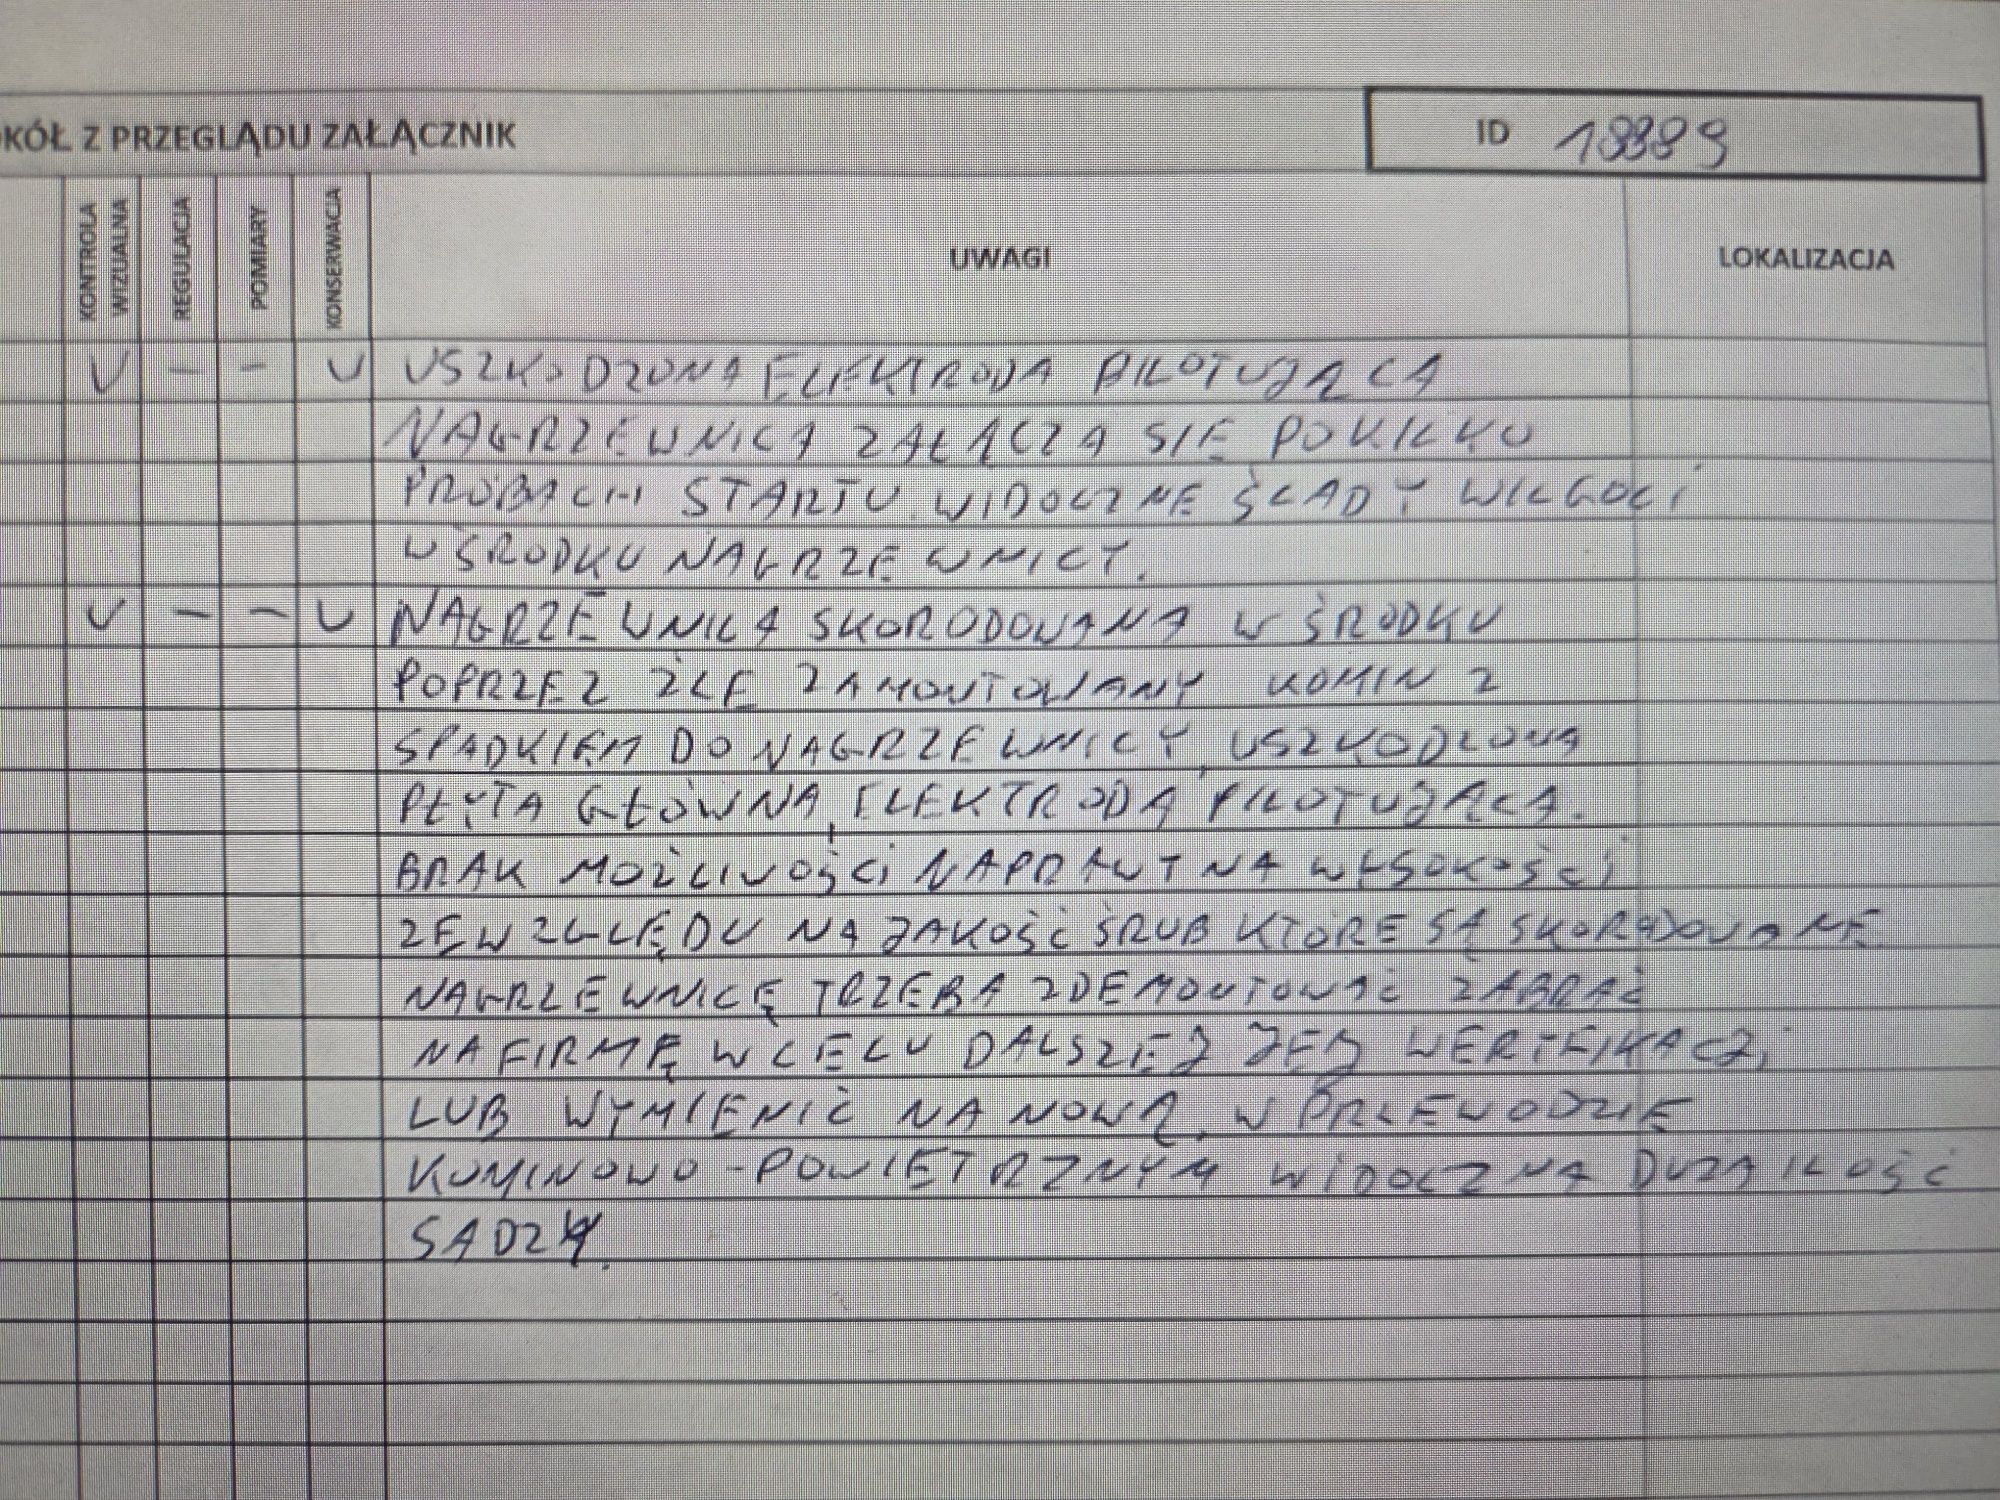 KÓŁ Z PRZEGLĄDU ZAŁĄCZNIK
ID
KONTROLA WIZUALNA
REGULACJA
POMIARY
KONSERWACJA
UWAGI
LOKALIZACJA
V - - V USZKODZONA ELEKTRODA PILOTUJĄCA
NAGRZEWNICA ZAŁĄCZA SIE PO KILKU
PRÓBACH STARTU. WIDOCZNE ŚLADY WILGOCI
W ŚRODKU NAGRZEWNICY.
V - - V NAGRZEWNICA SKORODOWANA W ŚRODKU
POPRZEZ ŹLE ZAMONTOWANY KOMIN Z
SPADKIEM DO NAGRZEWNICY, USZKODZONA
PŁYTA GŁÓWNA, ELEKTRODA PILOTUJĄCA.
BRAK MOŻLIWOŚCI NAPRAWY NA WYSOKOŚCI
ZE WZGLĘDU NA JAKOŚĆ ŚRUB KTÓRE SĄ SKORODOWANE
NAGRZEWNICĘ TRZEBA ZDEMONTOWAĆ ZABRAĆ
NA FIRMĘ W CELU DALSZEJ JEJ WERYFIKACJI
LUB WYMIENIĆ NA NOWĄ. W PRZEWODZIE
KOMINOWO-POWIETRZNYM WIDOCZNA DUŻA ILOŚĆ
SADZY.